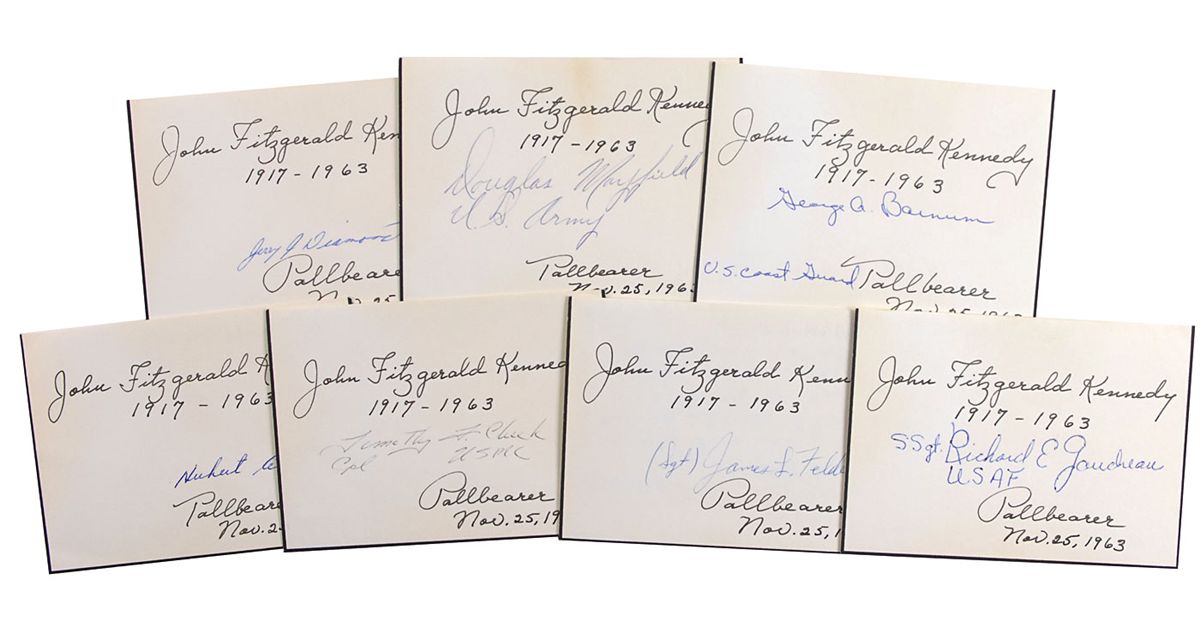 John Fitzgerald Ken
1917-1963
Jerry J Diamond
Pallbeare
Nov. 25
John Fitzgerald Kenney
1917-1963
Douglas Mayfield
U.S. Army
Pallbearer
Nov. 25, 1963
John Fitzgerald Kennedy
1917-1963
George A. Barnum
U.S. Coast Guard
Pallbearer
Nov. 25, 1963
John Fitzgerald K
1917 - 1963
Hubert
Pallbeare
Nov. 2
John Fitzgerald Kenned
1917-1963
Timothy F. Cheek
Cpl USMC
Pallbearer
Nov. 25, 19
John Fitzgerald Kenn
1917-1963
(Sgt) James L. Feld
Pallbearer
Nov. 25, 1
John Fitzgerald Kennedy
1917-1963
S Sgt. Richard E Gaudreau
USAF
Pallbearer
Nov. 25, 1963